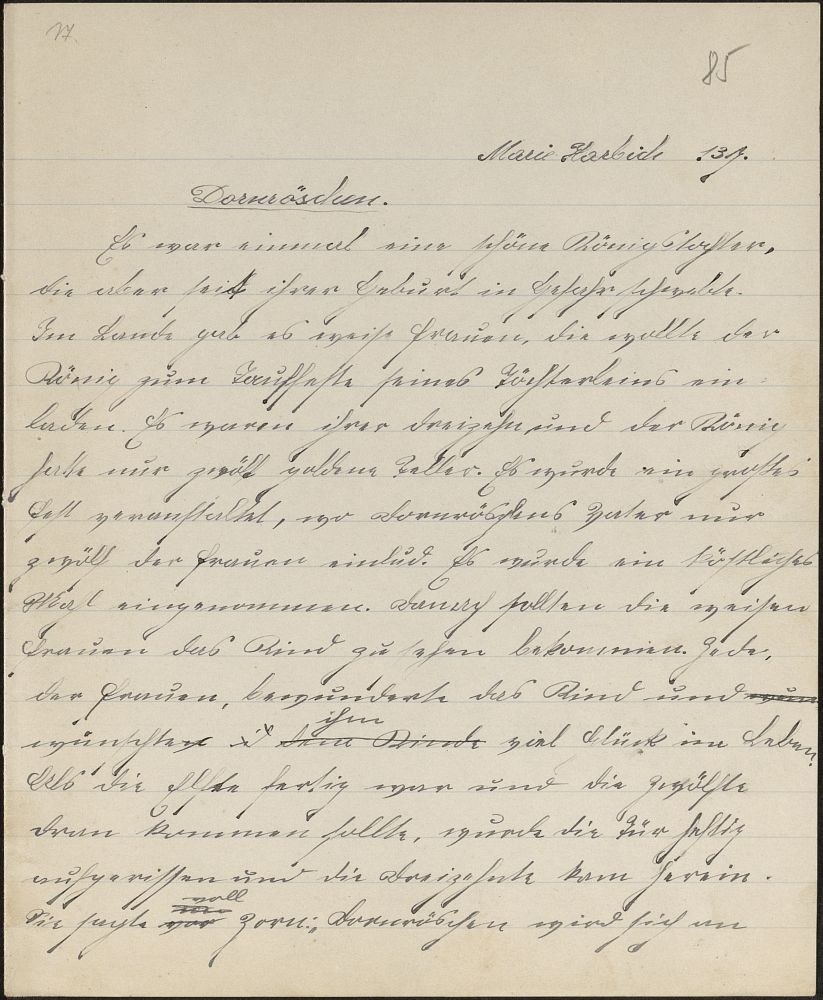 85
Marie Harbich 13J.
Dornröschen.
Es war einmal eine schöne Königstochter,
die aber seit ihrer Geburt in Gefahr schwebte.
Im Lande gab es weise Frauen, die wollte der
König zum Tauffeste seines Töchterleins ein-
laden. Es waren ihrer dreizehn und der König
hatte nur zwölf goldene Teller. Es wurde ein großes
Fest veranstaltet, wo Dornröschens Vater nur
zwölf der Frauen einlud. Es wurde ein köstliches
Mahl eingenommen. Danach sollten die weisen
Frauen das Kind zu sehen bekommen. Jede,
der Frauen, bewunderte das Kind und
ihm
wünschte dem Kinde viel Glück im Leben.
Als die Elfte fertig war und die zwölfte
dran kommen sollte, wurde die Tür heftig
aufgerissen und die Dreizehnte kam herein.
voll
Sie sagte vor Zorn: „Dornröschen wird sich an